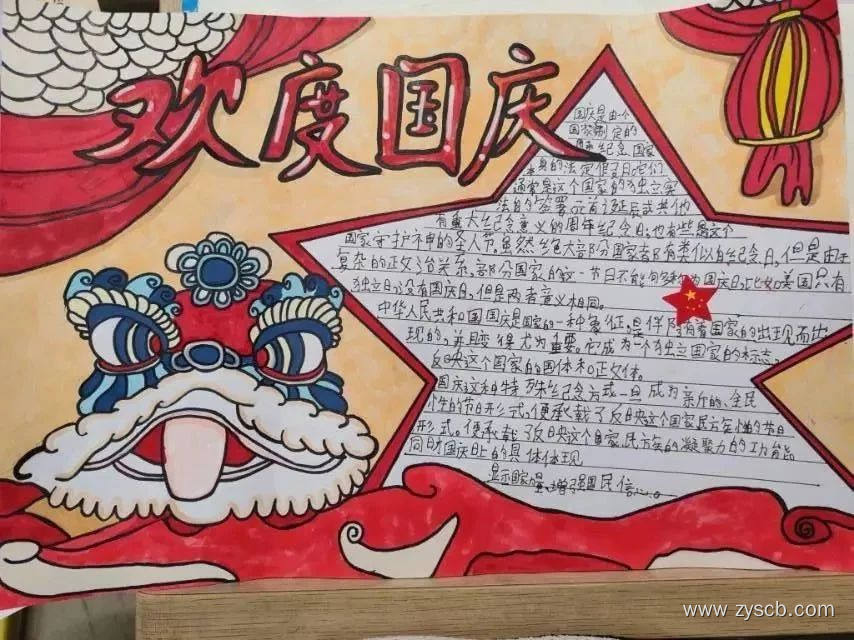 欢度国庆
国庆是由一个
国家制定的
纪念国家
身的法定假日它们
通常是这个国家的独立宪
法的签署元首诞辰或其他
有重大纪念意义的周年纪念日也有些是这个
国家守护神的圣人节。虽然绝大部分国家都有类似的纪念日,但是由于
复杂的正文台关系,部分国家的这一节日不能够称为国庆日,比如美国只有
独立日,没有国庆日,但是两者意义相同。
中华人民共和国国庆是国家的一种象征,是伴随着国家的出现而出
现的,并且变得尤为重要。它成为一个独立国家的标志,
反映这个国家的国体和正文体。
国庆这种特殊纪念方式一旦成为新的、全民
性的节日形式,便承载了反映这个国家民族性的节日
形式。便承载了反映这个国家民族的凝聚力的功能
同时国庆日上的具体体现
显国家量,增强国民信
www.zyscb.com